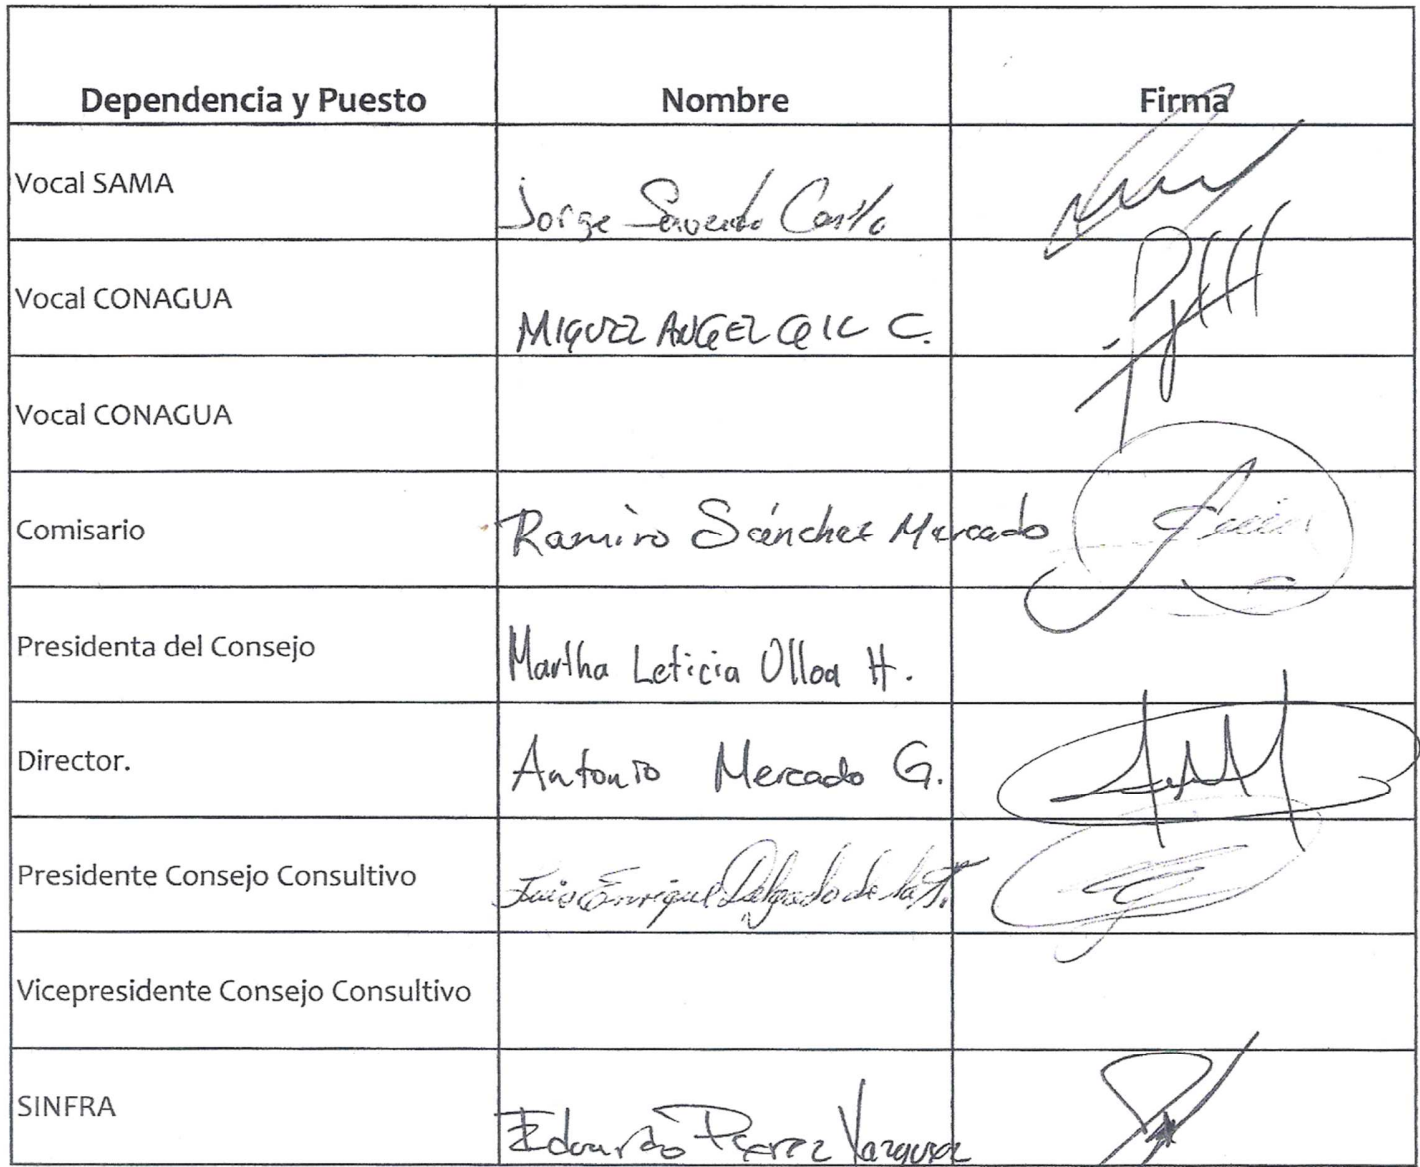 Dependencia y Puesto Nombre Firma
Vocal SAMA Jorge
Vocal CONAGUA MIGUEL ANGEL C.
Vocal CONAGUA
Comisario Ramiro Sánchez Mercado
Presidenta del Consejo Martha Leticia Ulloa H.
Director. Antonio Mercado G.
Presidente Consejo Consultivo Luis Enrique Delgado de la T.
Vicepresidente Consejo Consultivo
SINFRA Eduardo Perez Vazquez